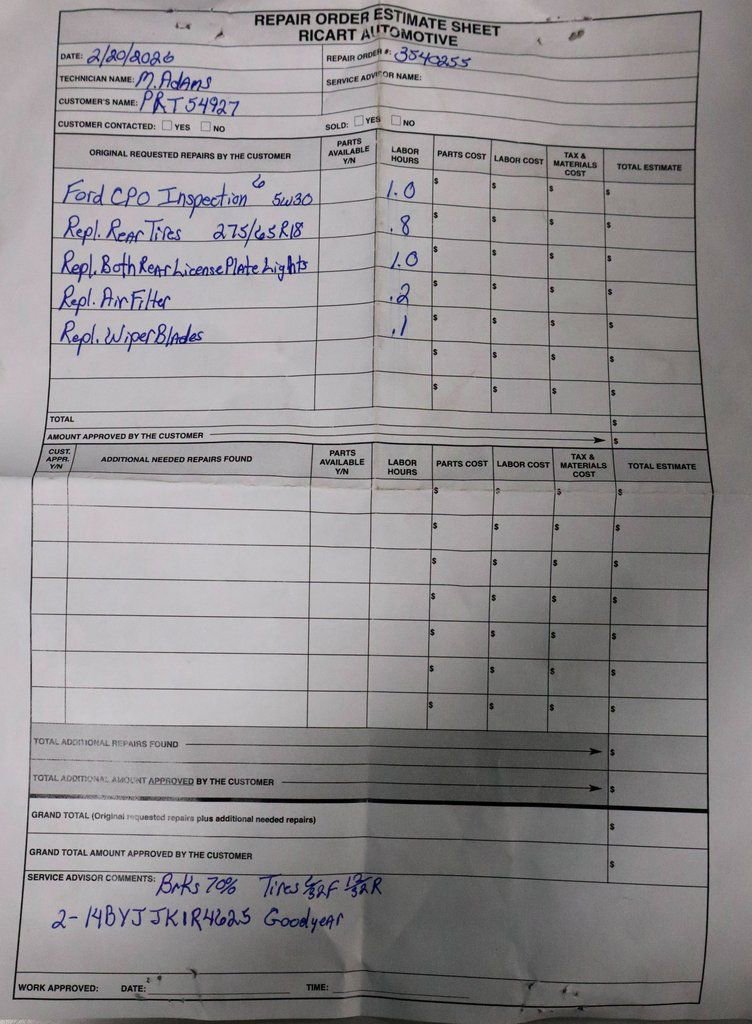 REPAIR ORDER ESTIMATE SHEET
RICART AUTOMOTIVE
DATE: 2/20/2026
REPAIR ORDER #: 3540255
TECHNICIAN NAME: M. Adams
SERVICE ADVISOR NAME:
CUSTOMER'S NAME: PRT 54927
CUSTOMER CONTACTED: YES NO SOLD: YES NO
ORIGINAL REQUESTED REPAIRS BY THE CUSTOMER PARTS AVAILABLE Y/N LABOR HOURS PARTS COST LABOR COST TAX & MATERIALS COST TOTAL ESTIMATE
Ford CPO Inspection 6 5W30 1.0 $ $ $ $
Repl. Rear Tires 275/65R18 .8 $ $ $ $
Repl. Both Rear License Plate Lights 1.0 $ $ $ $
Repl. Air Filter .2 $ $ $ $
Repl. Wiper Blades .1 $ $ $ $
$ $ $ $
$ $ $ $
TOTAL $
AMOUNT APPROVED BY THE CUSTOMER $
CUST. APPR. Y/N ADDITIONAL NEEDED REPAIRS FOUND PARTS AVAILABLE Y/N LABOR HOURS PARTS COST LABOR COST TAX & MATERIALS COST TOTAL ESTIMATE
$ $ $ $
$ $ $ $
$ $ $ $
$ $ $ $
$ $ $ $
$ $ $ $
$ $ $ $
TOTAL ADDITIONAL REPAIRS FOUND $
TOTAL ADDITIONAL AMOUNT APPROVED BY THE CUSTOMER $
GRAND TOTAL (Original requested repairs plus additional needed repairs) $
GRAND TOTAL AMOUNT APPROVED BY THE CUSTOMER $
SERVICE ADVISOR COMMENTS: Brks 70% Tires /32F 12/32R
2-14BYJJK1R4625 Goodyear
WORK APPROVED: DATE: TIME: